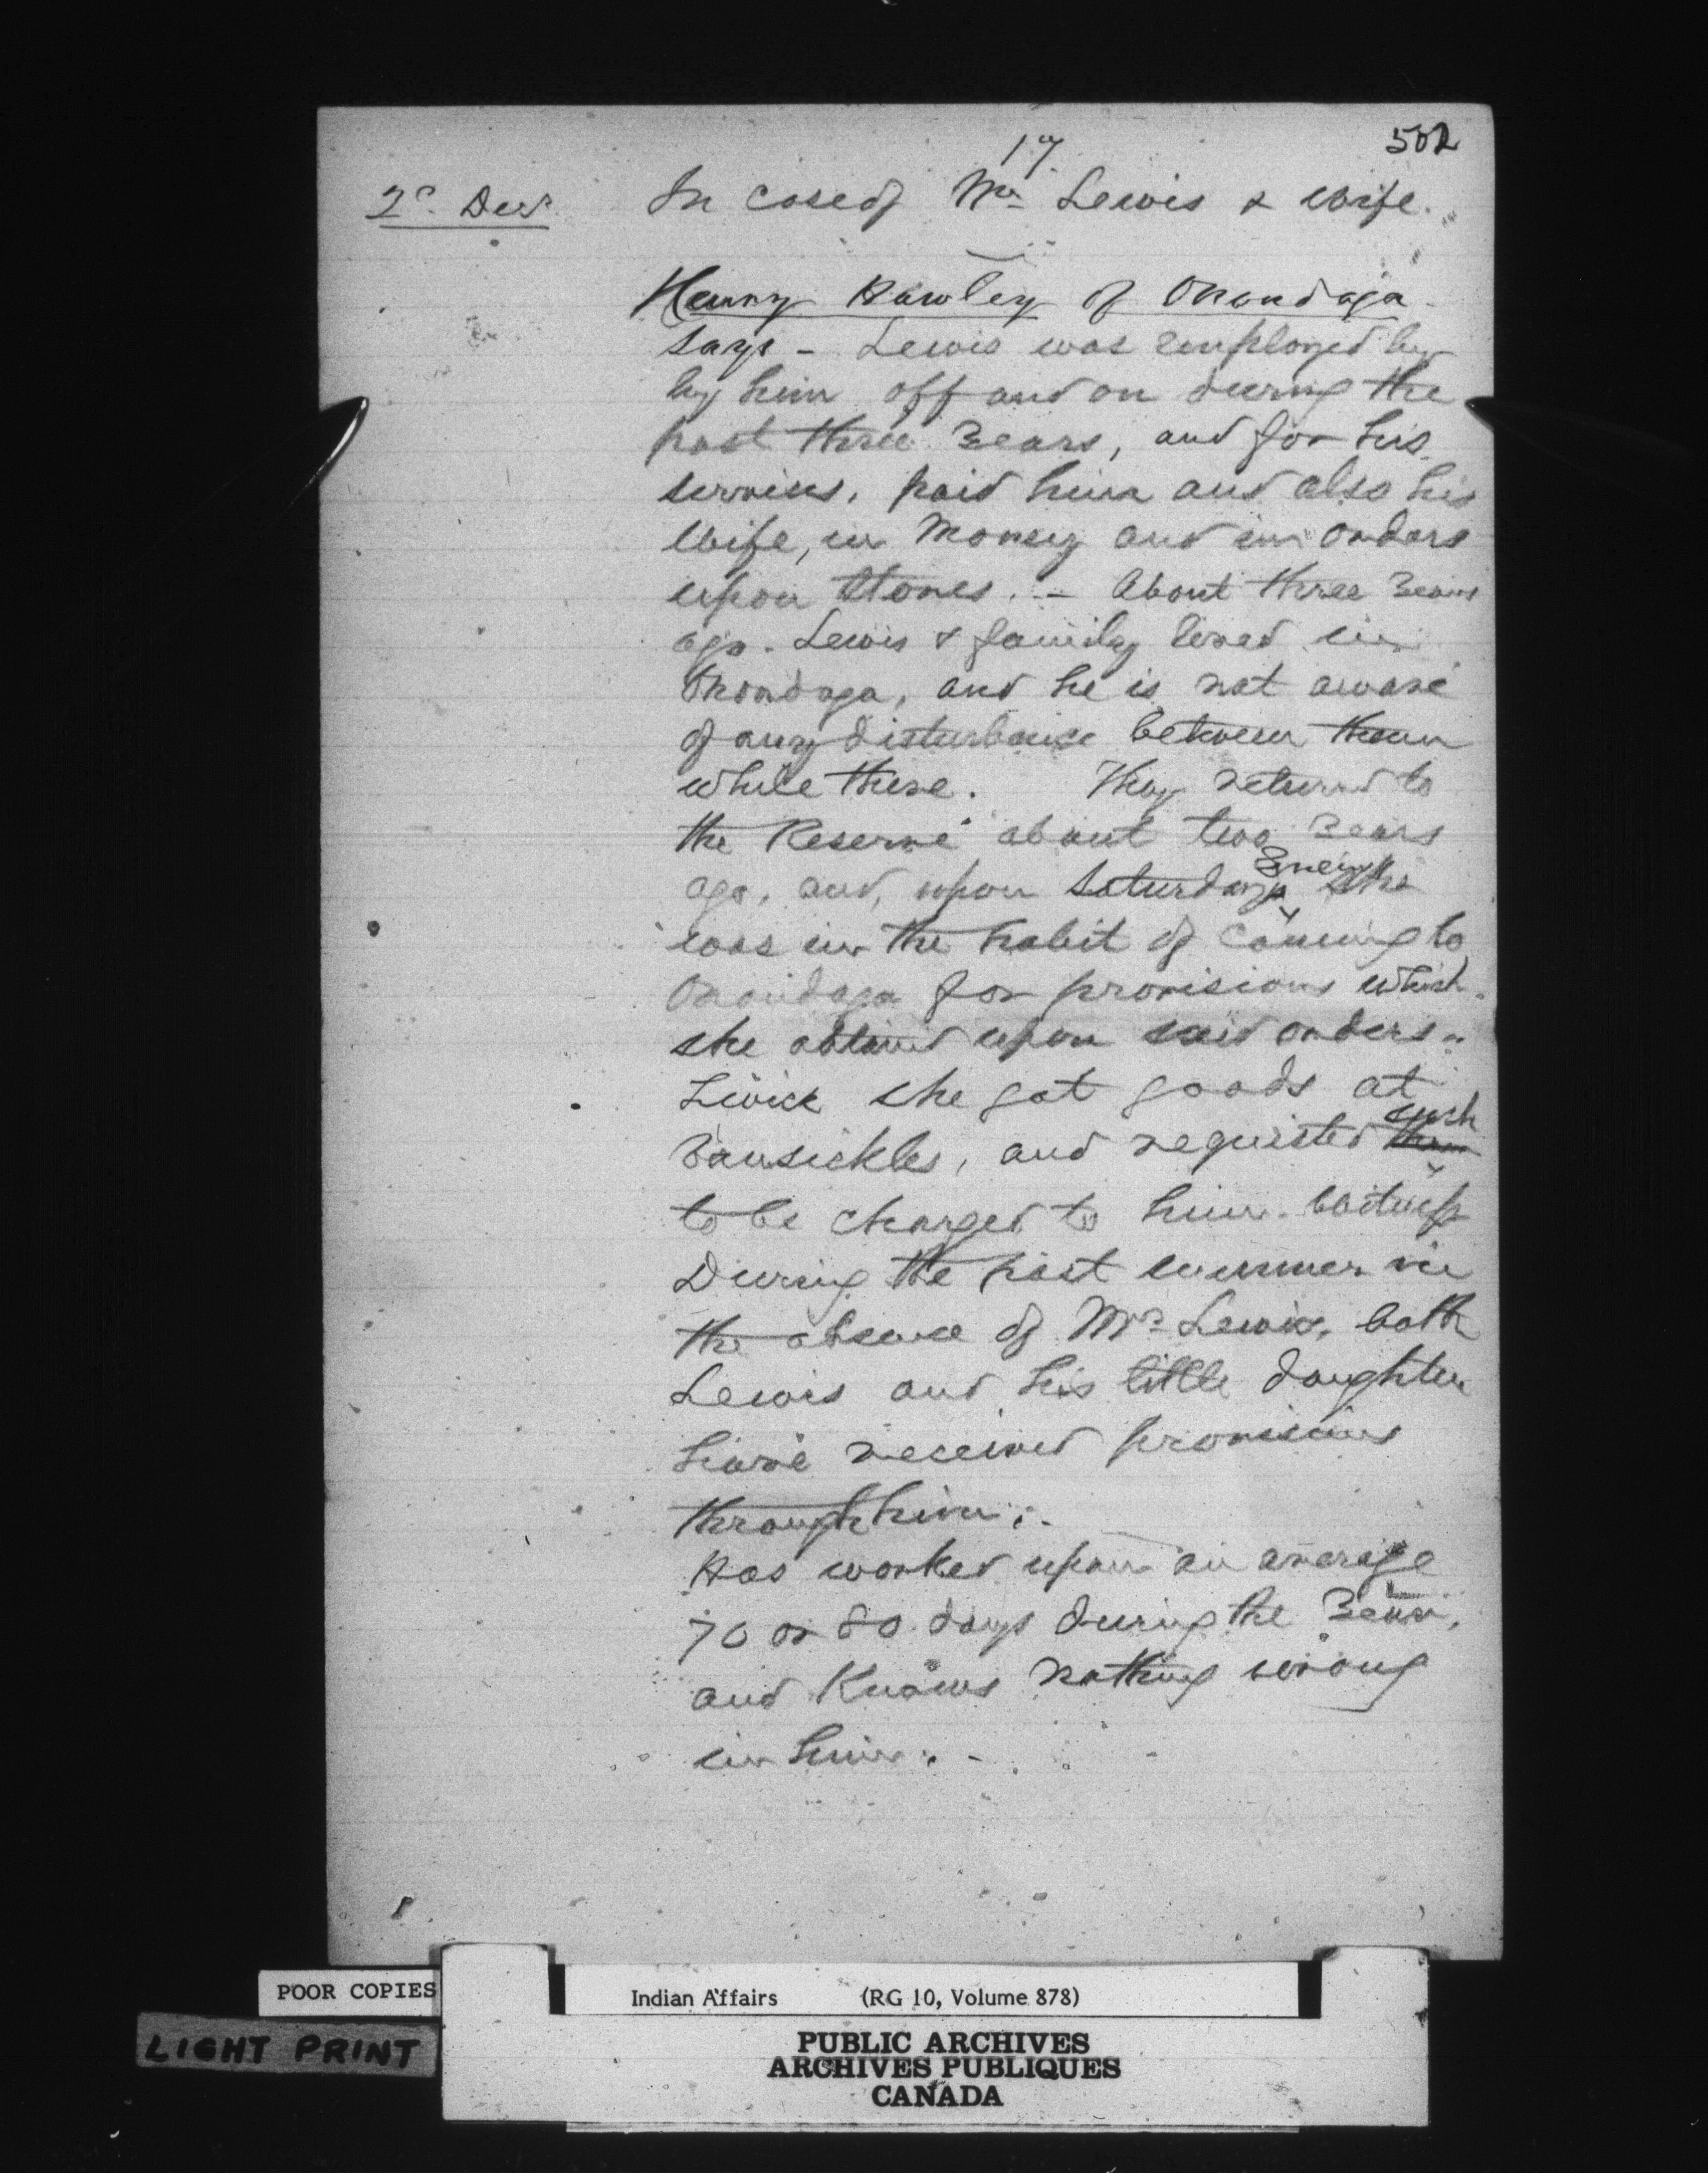 17
502
2d Decr
In case of Wm Lewis & Wife.
Henry Hawley of Onondaga
Says - Lewis was employed by
by him off and on during the
past three Years, and for his
services, paid him and also his
Wife, in Money and in orders
upon Stores. - About three Years
ago. Lewis & family lived in
Onondaga, and he is not aware
of any disturbance between them
while there. They returned to
the Reserve about two Years
ago, and, upon Saturdays she
was in the habit of coming to
Onondaga for provisions which
she obtained upon said orders.
she got goods at
Vansickles, and requested such
to be charged to him. Witness
During the past summer in
the absence of Mrs Lewis, both
Lewis and his little daughter
have received provisions
through him.
Has worked upon an average
70 or 80 days during the Year,
and Knows nothing wrong
in him. -
POOR COPIES
LIGHT PRINT
Indian Affairs (RG 10, Volume 878)
PUBLIC ARCHIVES
ARCHIVES PUBLIQUES
CANADA